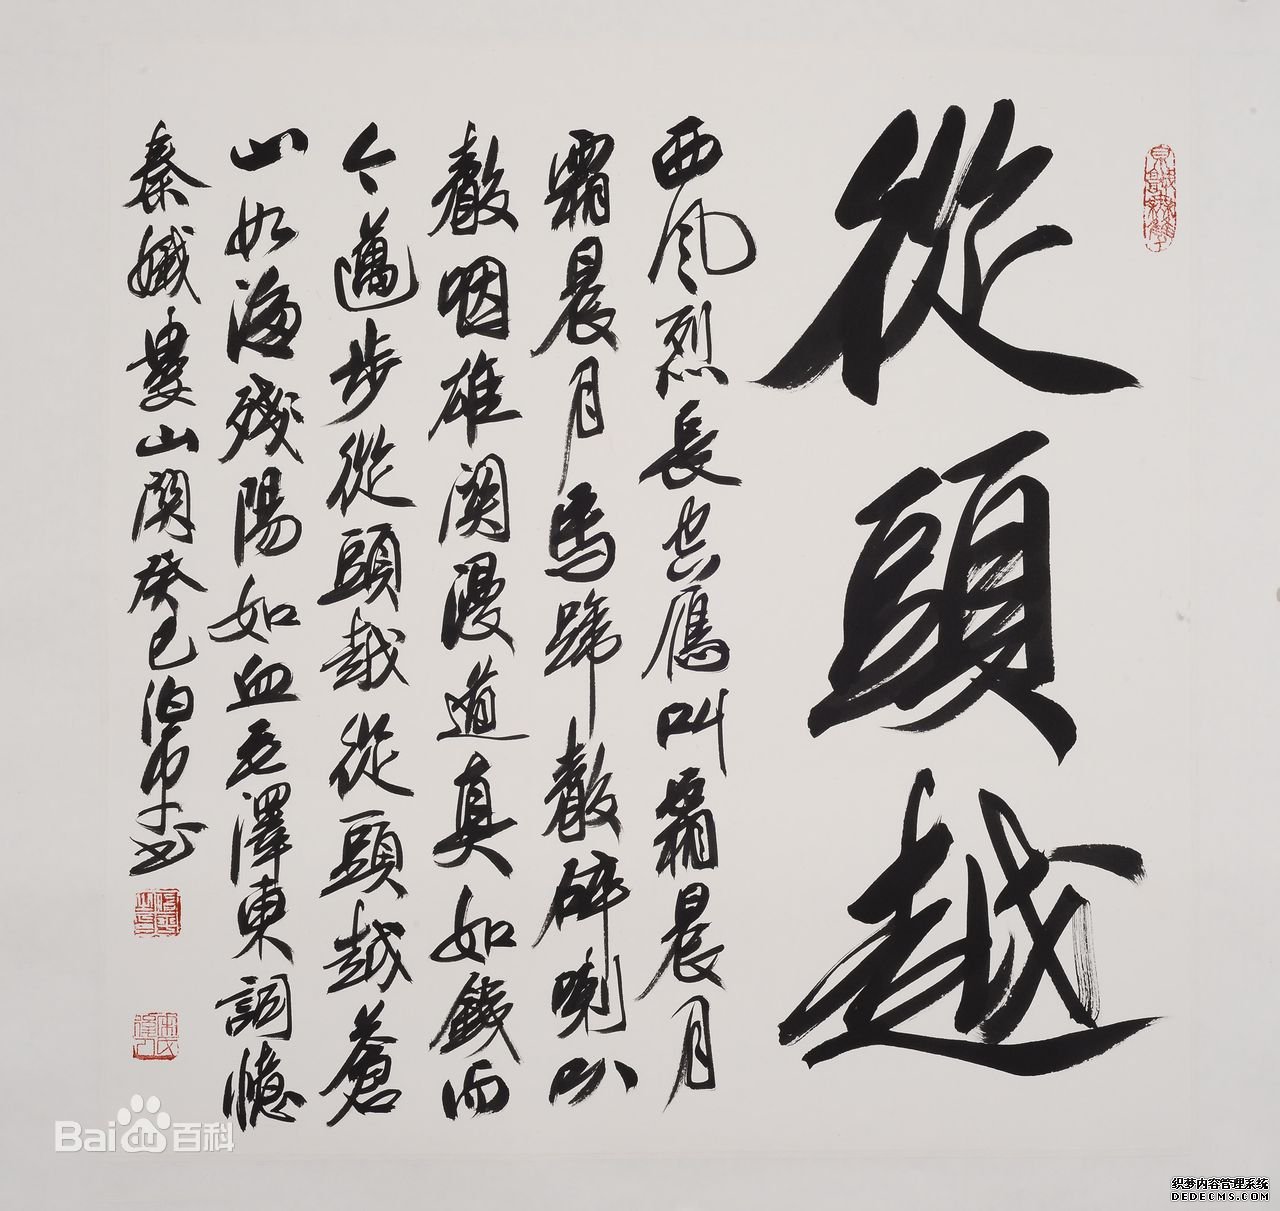 從頭越
西风烈長空雁叫霜晨月
霜晨月馬蹄聲碎喇叭
聲咽雄関漫道真如鐵而
今邁步從頭越從頭越蒼
山如海殘陽如血毛澤東詞憶
秦娥婁山関癸巳书
Bai百科
织梦内容管理系统
DEDECMS.COM